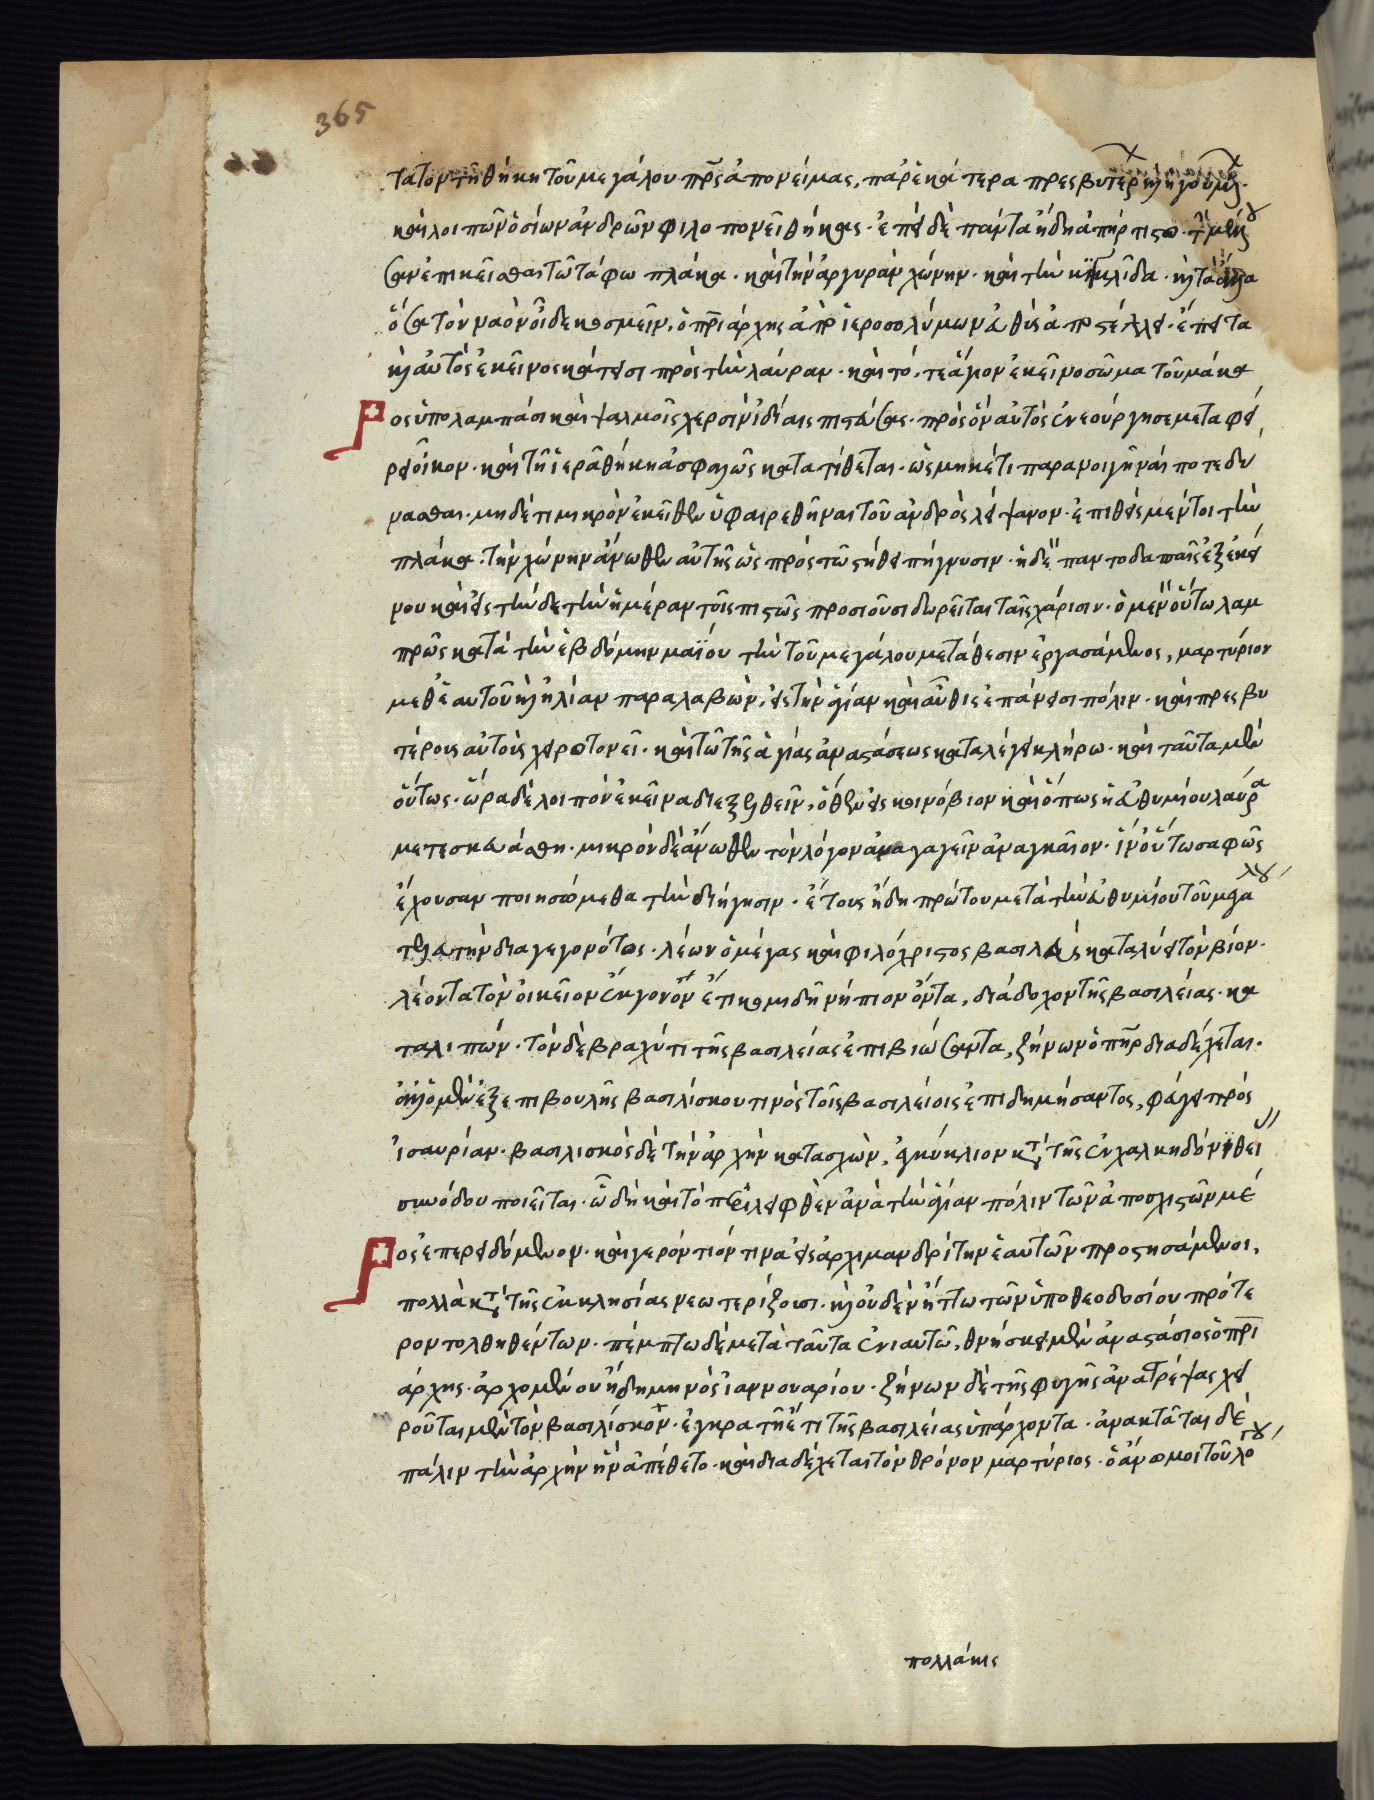 365
τατον τῆ θήκη τοῦ μεγάλου πρ̅ς ἀπονείμας, παρ' ἑκάτερα πρεσβυτέρ κὶ ἡγουμέν
καὶ λοιπῶν ὁσίων ἀνδρῶν φιλοπονεῖ θήκας. ἐπεὶ δὲ πάντα ἤδη ἀπήρτιστο. τὴν μέλλου
σαν ἐπικεῖσθαι τῶ τάφω πλάκα. καὶ τὴν ἀργυρᾶν χώνην. καὶ τὴν κιγκλίδα. κὶ τὰ ἄλλα
ὅσα τὸν ναὸν οἶδε κοσμεῖν, ὁ πρι̅άρχης ἀπὸ ἱεροσολύμων εὐθὺς ἀποστέλλει. ἔπειτα
κὶ αὐτὸς ἐκεῖνος κάτεισι πρὸς τὴν λαύραν. καὶ τό, τε ἅγιον ἐκεῖνο σῶμα τοῦ μάκα
ρος ὑπὸ λαμπάσι καὶ ψαλμοῖς χερσὶν ἰδίαις πιστεύσας. πρὸς ὃν αὐτὸς ἐνεούργησε μεταφέ
ρει οἶκον. καὶ τῆ ἱερᾶ θήκη ἀσφαλῶς κατατίθεται. ὡς μηκέτι παρανοιγῆναί ποτε δύ
νασθαι. μηδέ τι μικρὸν ἐκεῖθεν ὑφαιρεθῆναι τοῦ ἀνδρὸς λείψανον. ἐπιθεὶς μέντοι τὴν
πλάκα. τὴν χώνην ἄνωθεν αὐτῆς ὡς πρὸς τῶ στήθει πήγνυσιν. ἡ δὲ παντοδαπαῖς ἐξ ἐκεί
νου καὶ εἰς τήνδε τὴν ἡμέραν τοῖς πιστῶς προσιοῦσι δωρεῖται ταῖς χάρισιν. ὁ μὲν οὕτω λαμ
πρῶς κατὰ τὴν ἑβδόμην μαΐου τὴν τοῦ μεγάλου μετάθεσιν ἐργασάμενος, μαρτύριον
μεθ' ἑαυτοῦ κὶ ἠλίαν παραλαβὼν, εἰς τὴν ἁγίαν καὶ αὖθις ἐπάνεισι πόλιν. καὶ πρεσβυ
τέρους αὐτοὺς χειροτονεῖ. καὶ τῶ τῆς ἁγίας ἀναστάσεως καταλέγει κλήρω. καὶ ταῦτα μὲν
οὕτως. ὥρα δὲ λοιπὸν ἐκεῖνα διεξελθεῖν, ὅθεν εἰς κοινόβιον καὶ ὅπως ἡ εὐθυμίου λαύρα
μετεσκευάσθη. μικρὸν δὲ ἄνωθεν τὸν λόγον ἀναγαγεῖν ἀναγκαῖον. ἵν' οὕτω σαφῶς
ἔχουσαν ποιησώμεθα τὴν διήγησιν. ἔτους ἤδη πρώτου μετὰ τὴν εὐθυμίου τοῦ μεγάλου
τελευτὴν διαγεγονότος. λέων ὁ μέγας καὶ φιλόχριστος βασιλεὺς καταλύει τὸν βίον.
λέοντα τὸν οἰκεῖον ἔκγονον ἔτι κομιδῆ νήπιον ὄντα, διάδοχον τῆς βασιλείας. κα
ταλιπών. τὸν δὲ βραχύ τι τῆς βασιλείας ἐπιβιώσαντα, ζήνων ὁ πη̅ρ διαδέχεται.
ἀλλ' ὁ μὲν ἐξ ἐπιβουλῆς βασιλίσκου τινὸς τοῖς βασιλείοις ἐπιδημήσαντος, φεύγει πρὸς
ἰσαυρίαν. βασιλισκὸς δὲ τὴν ἀρχὴν κατασχὼν, ἐγκύκλιον κατὰ τῆς ἐν χαλκηδόνι θείας
συνόδου ποιεῖται. ὧ δὴ καὶ τὸ περιλειφθὲν ἀνὰ τὴν ἁγίαν πόλιν τῶν ἀποσχιστῶν μέ
ρος ἐπερειδόμενον. καὶ γερόντιόν τινα εἰς ἀρχιμανδρίτην ἑαυτῶν προστησάμενοι,
πολλὰ κατὰ τῆς ἐκκλησίας νεωτερίζουσι. κὶ οὐδὲν ἧττω τῶν ὑπὸ θεοδοσίου πρότε
ρον τολμηθέντων. πέμπτω δὲ μετὰ ταῦτα ἐνιαυτῶ, θνήσκει μὲν ἀναστάσιος ὁ πρι̅
άρχης. ἀρχομένου ἤδη μηνὸς ἰαννουαρίου. ζήνων δὲ τῆς φυγῆς ἀνατρέψας χει
ροῦται μὲν τὸν βασιλίσκον. ἐγκρατῆ ἔτι τῆς βασιλείας ὑπάρχοντα. ἀνακτᾶται δὲ
πάλιν τὴν ἀρχὴν ἣν ἀπέθετο. καὶ διαδέχεται τὸν θρόνον μαρτύριος. ὃ ἄνω μοι τοῦ λόγου
πολλάκις